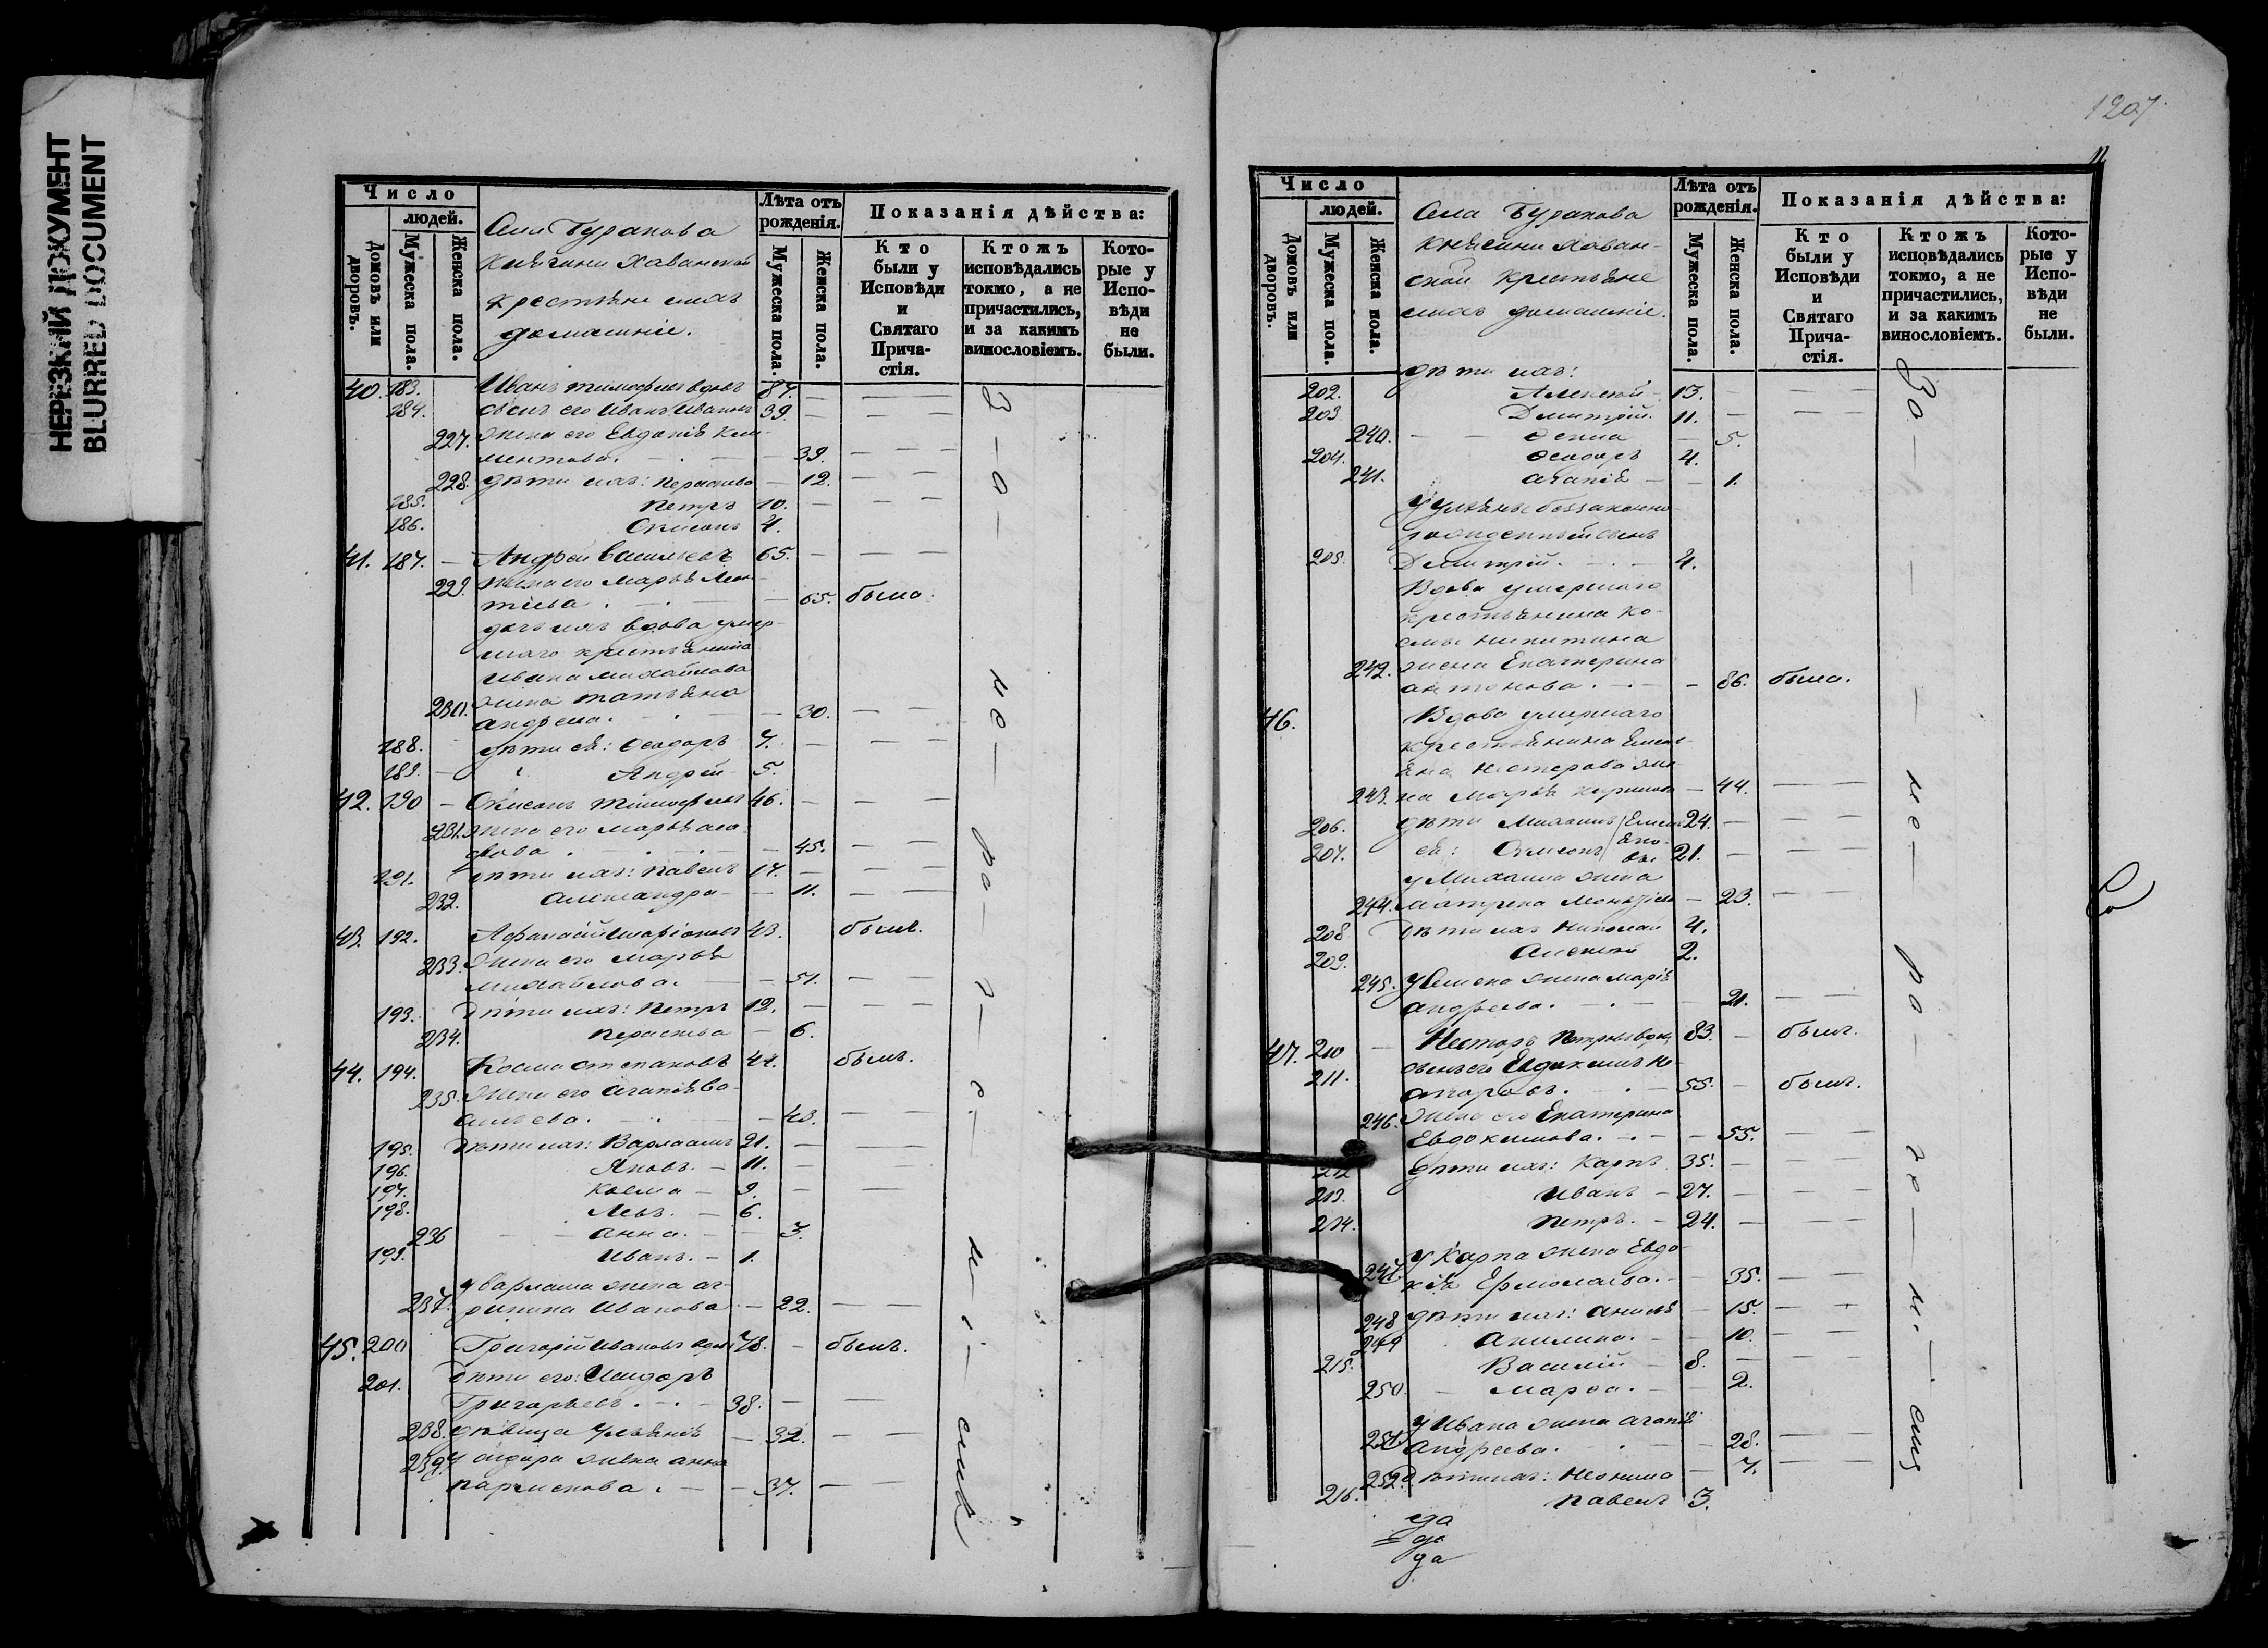 НЕРЕЗКИЙ ДОКУМЕНТ
BLURRED DOCUMENT
Число
людей.
Домовъ или дворовъ.
Мужеска пола.
Женска пола.
Села Буракова
Княгини Хаванской
крестьяне и ихъ
домашніе.
Лѣта отъ рожденія.
Мужеска пола.
Женска пола.
Показанія дѣйства:
Кто были у Исповѣди и Святаго Причастія.
Ктожъ исповѣдались токмо, а не причастились, и за какимъ винословіемъ.
Которые у Исповѣди не были.
40. 183. Иванъ Тимофеевъ вдовъ 87. — — —
184. сынъ его Иванъ Ивановъ 39. — — —
227. жена его Евдокія Кли-
ментова. — 39. — — —
228. дѣти ихъ: Параскева — 12. — — —
185. Петръ 10. — — —
186. 4.
41. 187. — Андрей Васильевъ 65. — — —
229. жена его Марья Леон-
тіева. — 65. была.
дочь ихъ вдова умер-
шаго крестьянина
Ивана Михайлова
230. жена Татьяна
Андреева. — 30. — —
188. дѣти ея: Ѳеодоръ 7. — — —
189. — Андрей 5.
42. 190 — Тимофеевъ 46. — — —
231. жена его Марья
— 45. — —
191. дѣти ихъ: Павелъ 17. — — —
232. Александра — 11. — —
43. 192. Афанасій Иларіоновъ 43. былъ.
233. жена его Марья
Михайлова. — 51. — —
193. Дѣти ихъ: Петръ 12. — — —
234. Параскева — 6.
44. 194. Косма Степановъ 44. былъ.
235. жена его Агапія Ва-
сильева. — 43. — —
195. Дѣти ихъ: Варлаамъ 21. — — —
196. Яковъ. — 11. — —
197. Косма — 9. — —
198. Левъ. — 6.
236 — — Анна. — — 3.
199. Иванъ. — 1.
237. у Варлаама жена Аг-
рипина Иванова — 22. — —
45. 200. Григорій Ивановъ вдовъ 78. — былъ.
201. Дѣти его: Исидоръ
Григорьевъ. — 38. — —
238. дѣвица Ульянія — 32. — —
239. У Сидора жена Анна
— 37. — — —
За не ра че ні емъ
1207
Число
людей.
Домовъ или дворовъ.
Мужеска пола.
Женска пола.
Села Буракова
Княгини Хован-
ской крестьяне
и ихъ домашніе.
Лѣта отъ рожденія.
Мужеска пола.
Женска пола.
Показанія дѣйства:
Кто были у Исповѣди и Святаго Причастія.
Ктожъ исповѣдались токмо, а не причастились, и за какимъ винословіемъ.
Которые у Исповѣди не были.
дѣти ихъ:
202. Алексей — 13. — — —
203 Дмитрій. 11. — — —
240. — — — 5.
204. Ѳеодоръ 4.
241. Агапія — — 1.
у Ульяны беззаконно
рожденный сынъ
205. Дмитрій. — 4.
Вдова умершаго
крестьянина Ко-
смы Никитина
242. жена Екатерина
Антонова. — — 86. была.
46. Вдова умершаго
крестьянина Емель-
яна Нестерова же-
243. на Марья — 44. — —
206. дѣти Михаилъ Емель 24. — — —
207. ея: яно- вы 21. — — —
у Михаила жена
244. Матрена — 23. — —
208 Дѣти ихъ Николай 4.
209. Алексей 2.
245. жена Марія
Андреева. — — 21. — —
47. 210 — Несторъ Петровъ вдов. 83. — былъ.
211. сынъ его Евдокимъ Не-
сторовъ. — 55. — былъ.
246. жена его Екатерина
Евдокимова. — — 55. — —
212 дѣти ихъ: Карпъ 35. — — —
213. Иванъ — 27. — — —
214. Петръ. — 24. — — —
247. у Карпа жена Евдо-
кія Ермолаева. — 35. — —
248 дѣти ихъ: — 15. — —
249 Акилина. — — 10. — —
215. Василій — 8. — — —
250. — Марѳа. — — 2.
251. у Ивана жена Агапія
Андреева. — 28. — —
252. Дѣти ихъ: Неонила — 7. — —
216. Павелъ 3.
За не ра че ні емъ
да
да